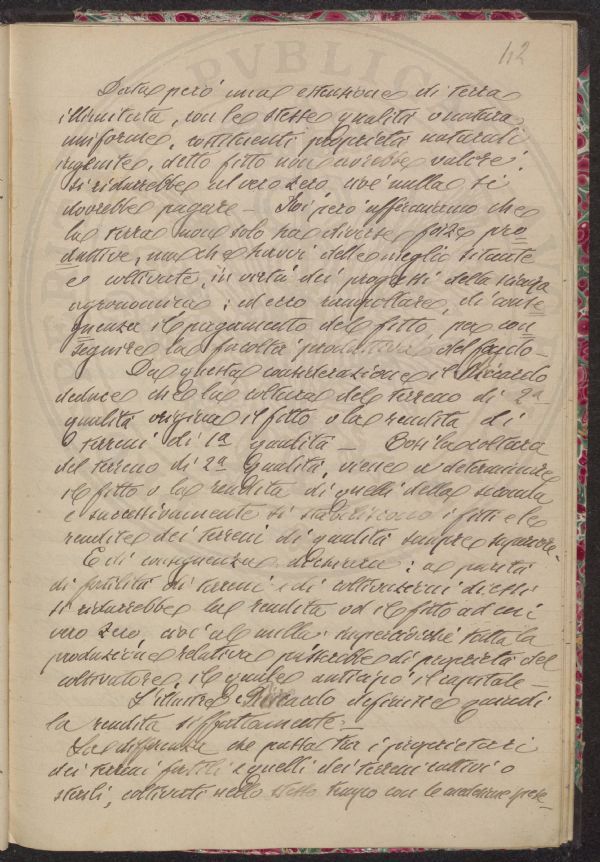 42
Data però una estensione di terra
illimitata, con le stesse qualità o natura
uniforme, costituenti proprietà naturali
ingenite, detto fitto non avrebbe valore:
si ridurrebbe al vero zero, cioè nulla si
dovrebbe pagare — Noi però affermiamo che
la terra non solo ha diverse forze pro=
duttive, ma che havvi delle meglio situate
e coltivate, in virtù dei progressi della scienza
agronomica; ed ecco di conse=
guenza il pagamento del fitto, per con=
seguire la facoltà produttiva del fondo —
Da questa considerazione il Riccardo
deduce che la coltura del terreno di 2ª
qualità origina il fitto o la rendita di
terreni di 1ª qualità — Così la coltura
del terreno di 3ª qualità, viene a determinare
il fitto o la rendita di quelli della seconda
e successivamente si stabiliscono i fitti e le
rendite dei terreni di qualità sempre superiore —
E di conseguenza : a parità
di fertilità di terreni e di coltivazioni di essi
si ridurrebbe la rendita od il fitto ad un
vero zero, cioè al nulla; imperciocchè tutta la
produzione relativa passerebbe di proprietà del
coltivatore, il quale anticipò il capitale —
L'illustre Riccardo definisce quindi
la rendita siffattamente: —
La differenza che passa tra i proprietari
dei terreni fertili e quelli dei terreni cattivi o
sterili, coltivati nello stesso tempo con le medesime